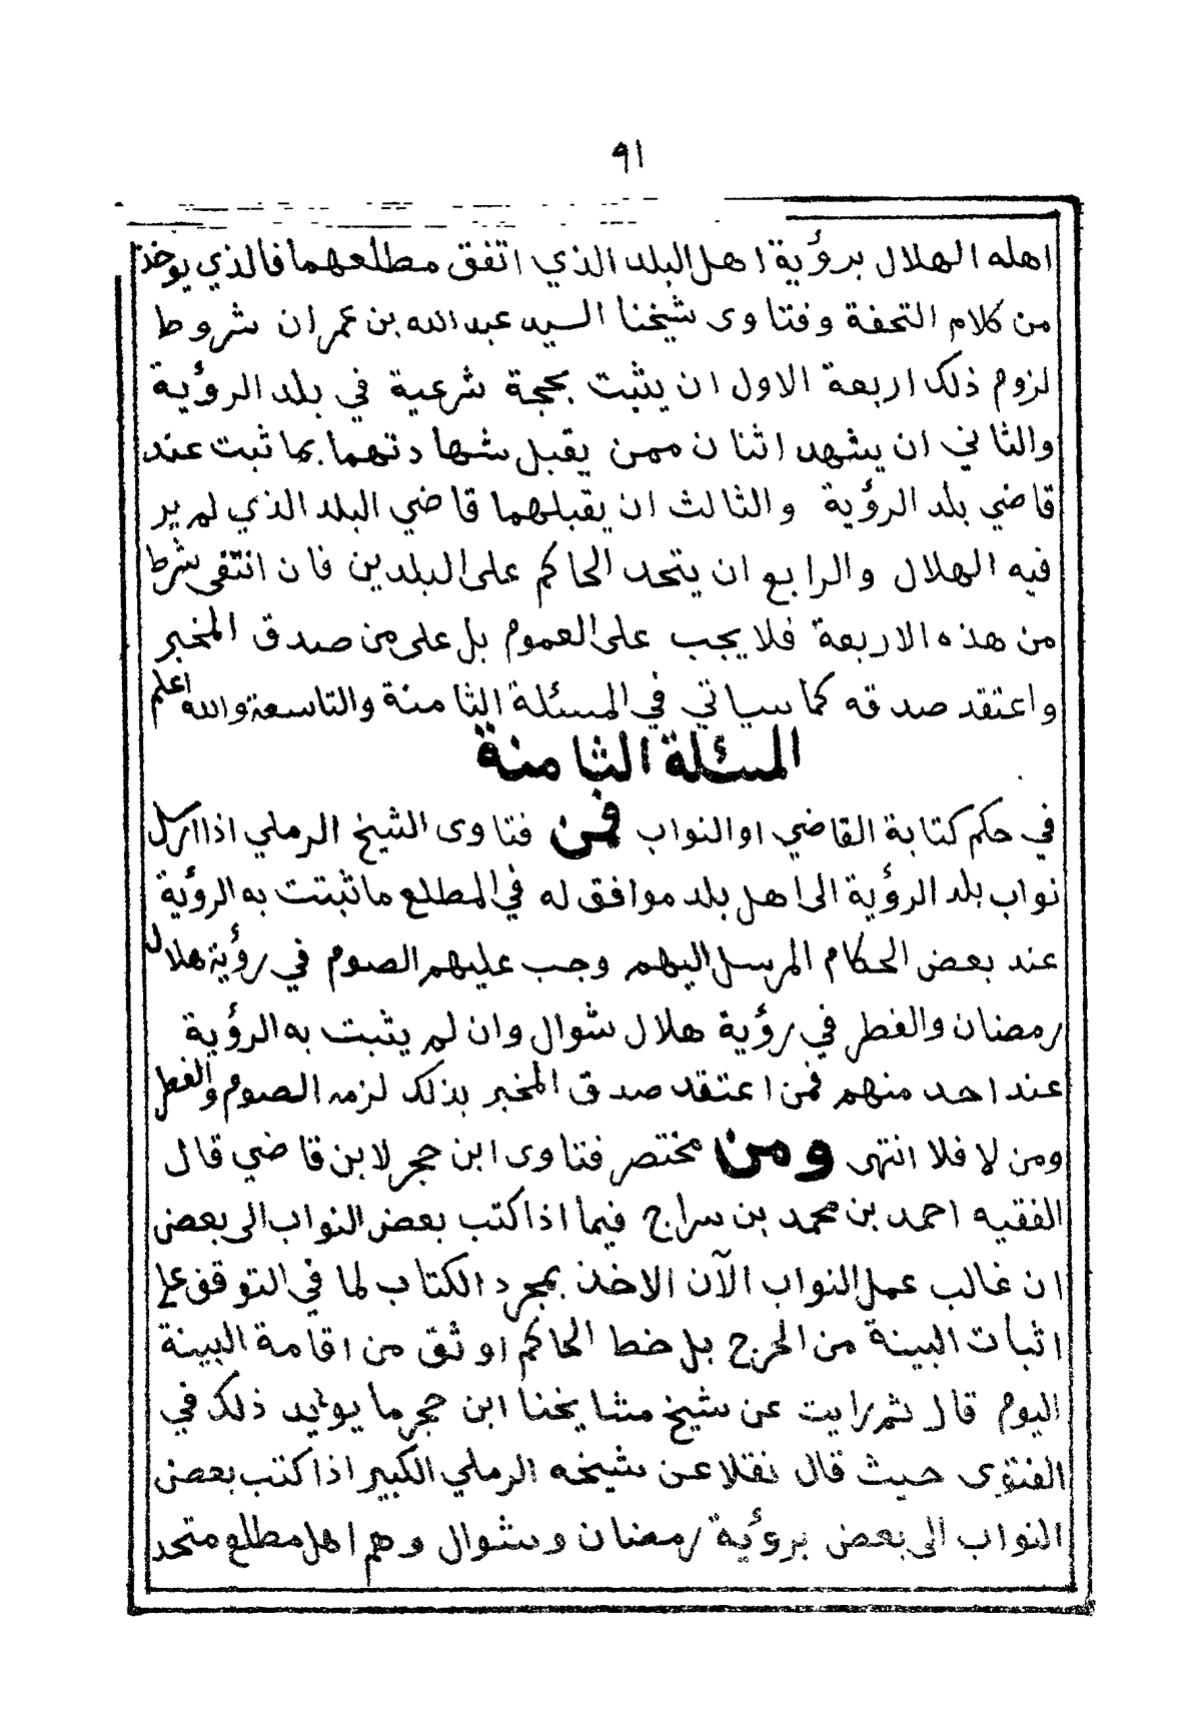 ٩١
اهله الهلال برؤية اهل البلد الذي اتفق مطلعهما فالذي يوخذ
من كلام التحفة وفتاوى شيخنا السيد عبد الله بن عمر ان شروط
لزوم ذلك اربعة الاول ان يثبت بحجة شرعية في بلد الرؤية
والثاني ان يشهد اثنان ممن يقبل شهادتهما بما ثبت عند
قاضي بلد الرؤية والثالث ان يقبلهما قاضي البلد الذي لم ير
فيه الهلال والرابع ان يتحد الحاكم على البلدين فان انتفى شرط
من هذه الاربعة فلا يجب على العموم بل على من صدق المخبر
واعتقد صدقه كما سياتي في المسئلة الثامنة والتاسعة والله اعلم
المسئلة الثامنة
في حكم كتابة القاضي او النواب فمن فتاوى الشيخ الرملي اذا ارسل
نواب بلد الرؤية الى اهل بلد موافق له في المطلع ما ثبتت به الرؤية
عند بعض الحكام المرسل اليهم وجب عليهم الصوم في رؤية هلال
رمضان والفطر في رؤية هلال شوال وان لم يثبت به الرؤية
عند احد منهم فمن اعتقد صدق المخبر بذلك لزمه الصوم والفطر
ومن لا فلا انتهى ومن مختصر فتاوى ابن حجر لابن قاضي قال
الفقيه احمد بن محمد بن سراج فيما اذا كتب بعض النواب الى بعض
ان غالب عمل النواب الآن الاخذ بمجرد الكتاب لما في التوقف على
اثبات البينة من الحرج بل خط الحاكم اوثق من اقامة البينة
اليوم قال ثم رايت عن شيخ مشايخنا ابن حجر ما يوئيد ذلك في
الفتوى حيث قال نقلا عن شيخه الرملي الكبير اذا كتب بعض
النواب الى بعض برؤية رمضان وشوال وهم اهل مطلع متحد